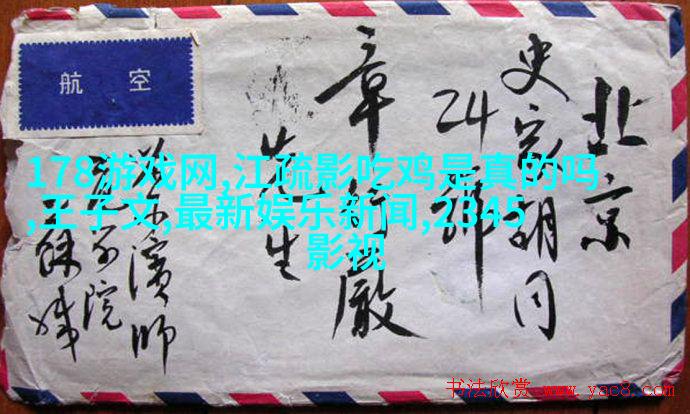 航空
北京
史家胡同
24號
章行嚴
先生
濱師
院
178游戏网,江疏影吃鸡是真的吗
,王子文,最新娱乐新闻,2345
影视
书法欣赏 www.yac8.com